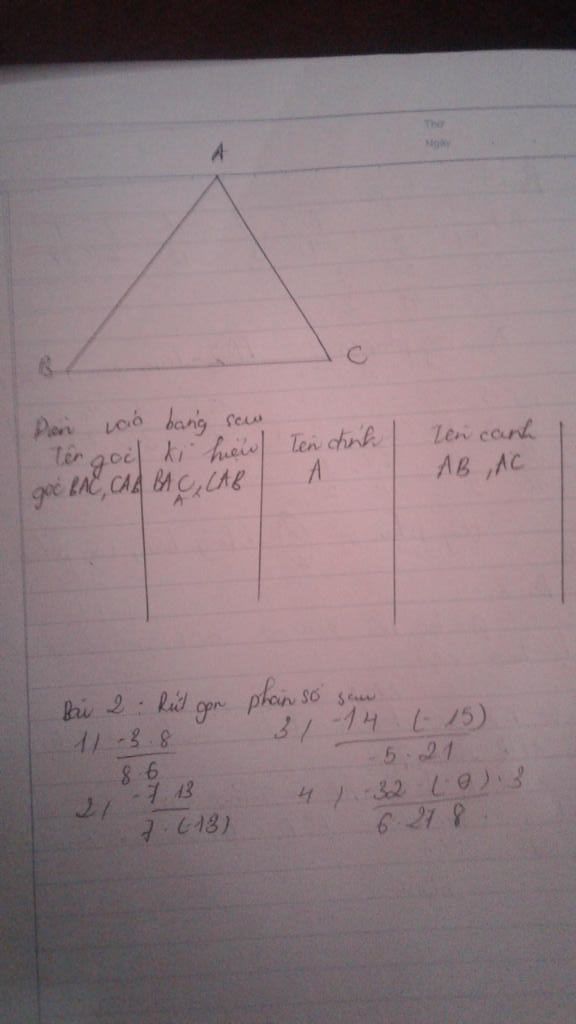 Thứ
Ngày
A
B
C
Điền vào bảng sau
Tên góc kí hiệu Tên đỉnh Tên cạnh
góc BAC, CAB BAC, CAB A AB, AC
A
Bài 2: Rút gọn phân số sau
1) -3.8 / 8.6 3) -14 (-15) / -5.21
2) -7 13 / 7.(-13) 4) -32 (-9).3 / 6.27 8